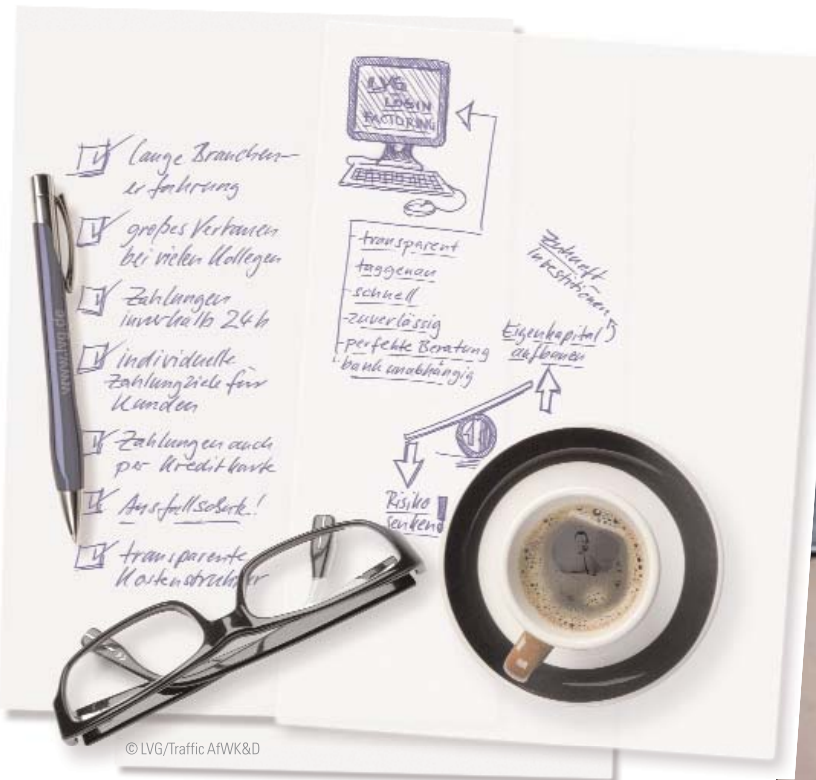 lange Branchen-
erfahrung
großes Vertrauen
bei vielen Kollegen
Zahlungen
innerhalb 24h
individuelle
Zahlungsziele für
Kunden
Zahlungen auch
per Kreditkarte
Ausfallschutz!
transparente
Kostenstruktur
www.lvg.de
LVG
LOGIN
FACTORING
- transparent
- taggenau
- schnell
- zuverlässig
- perfekte Beratung
- bankunabhängig
Zukunft
Investitionen
Eigenkapital
aufbauen
Risiko
senken!
© LVG/Traffic AfWK&D